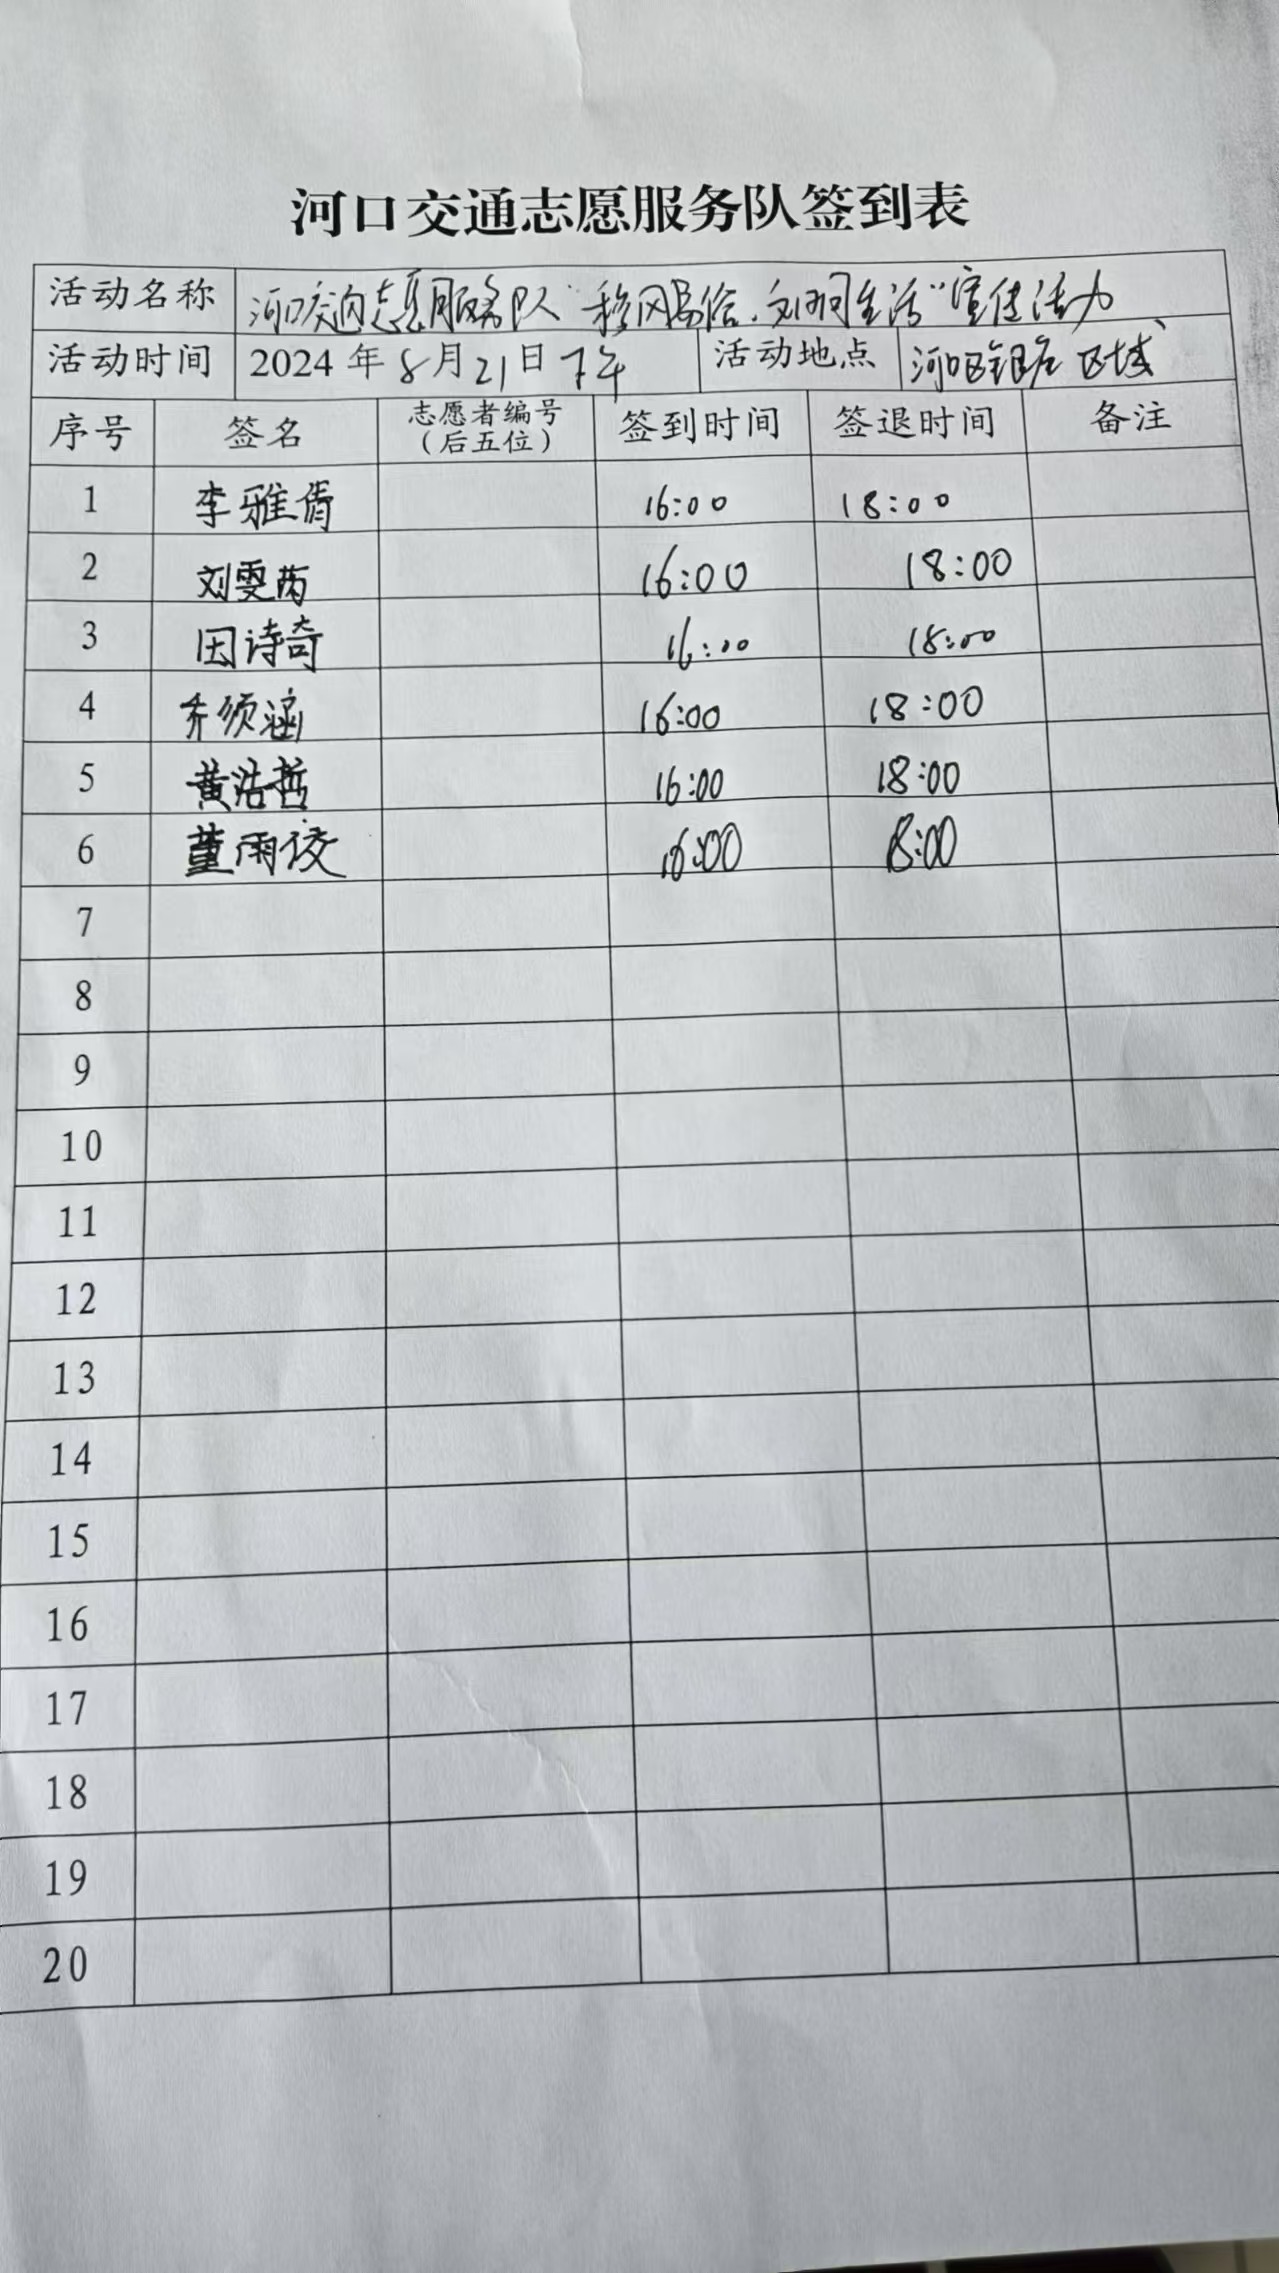 河口交通志愿服务队签到表
活动名称 河口交通志愿服务队"移风易俗、文明生活"宣传活动
活动时间 2024年8月21日下午 活动地点 河口区银座区域
序号 签名 志愿者编号（后五位） 签到时间 签退时间 备注
1 李雅倩 16:00 18:00
2 刘雯芮 16:00 18:00
3 田诗奇 16:00 18:00
4 乔须涵 16:00 18:00
5 黄浩哲 16:00 18:00
6 董雨 16:00 18:00
7
8
9
10
11
12
13
14
15
16
17
18
19
20